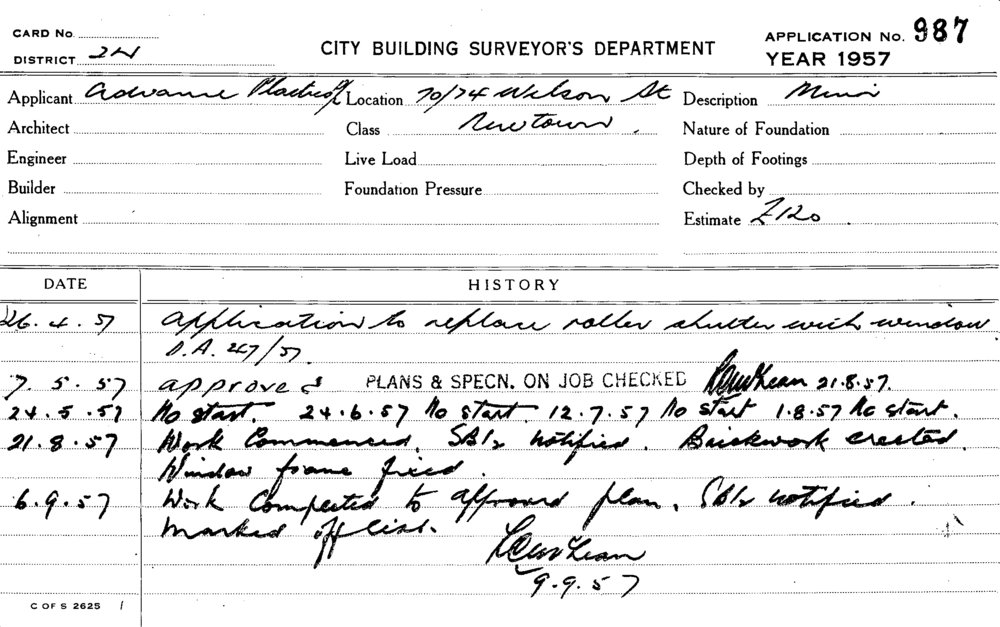 CARD No.
DISTRICT 24
CITY BUILDING SURVEYOR'S DEPARTMENT
APPLICATION No. 987
YEAR 1957
Applicant Advance Location 70/74 Wilson St Description Minor
Architect Class Newtown. Nature of Foundation
Engineer Live Load Depth of Footings
Builder Foundation Pressure Checked by
Alignment Estimate £120.
DATE HISTORY
26.4.57 Application to replace roller shutter with window
D.A. 247/57.
7.5.57 approved PLANS & SPECN. ON JOB CHECKED 21.8.57.
24.5.57 No start. 24.6.57 No start 12.7.57 No start 1.8.57 No start.
21.8.57 Work Commenced. notified. Brickwork erected.
Window frame fixed.
6.9.57 Work Completed to approved plan. notified.
Marked off list.
9.9.57
C OF S 2625